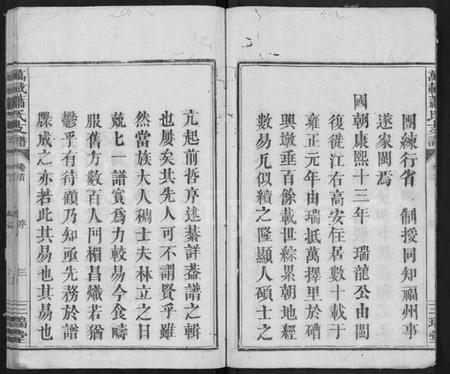 萬載蕭氏支譜
三瑞堂
團練行省 制授同知福州事
遂家閩焉
國朝康熙十三年 瑞龍公由閩
復徙江右高安住居數十載于
雍正元年由瑞抵萬擇里於礄
興墩垂百餘載世綜累朝地經
數易凡似續之隆顯人碩士之
亢起前哲序述綦詳葢譜之輯
也屢矣其先人可不謂賢乎雖
然當族大人稠士夫林立之日
兢匕一譜實爲力較易今食疇
服舊方數百人門楣昌熾若猶
鬱乎有待顧乃知亟先務於譜
牒成之亦若此其易也其易也
萬載蕭氏支譜
卷首
序
三
三瑞堂